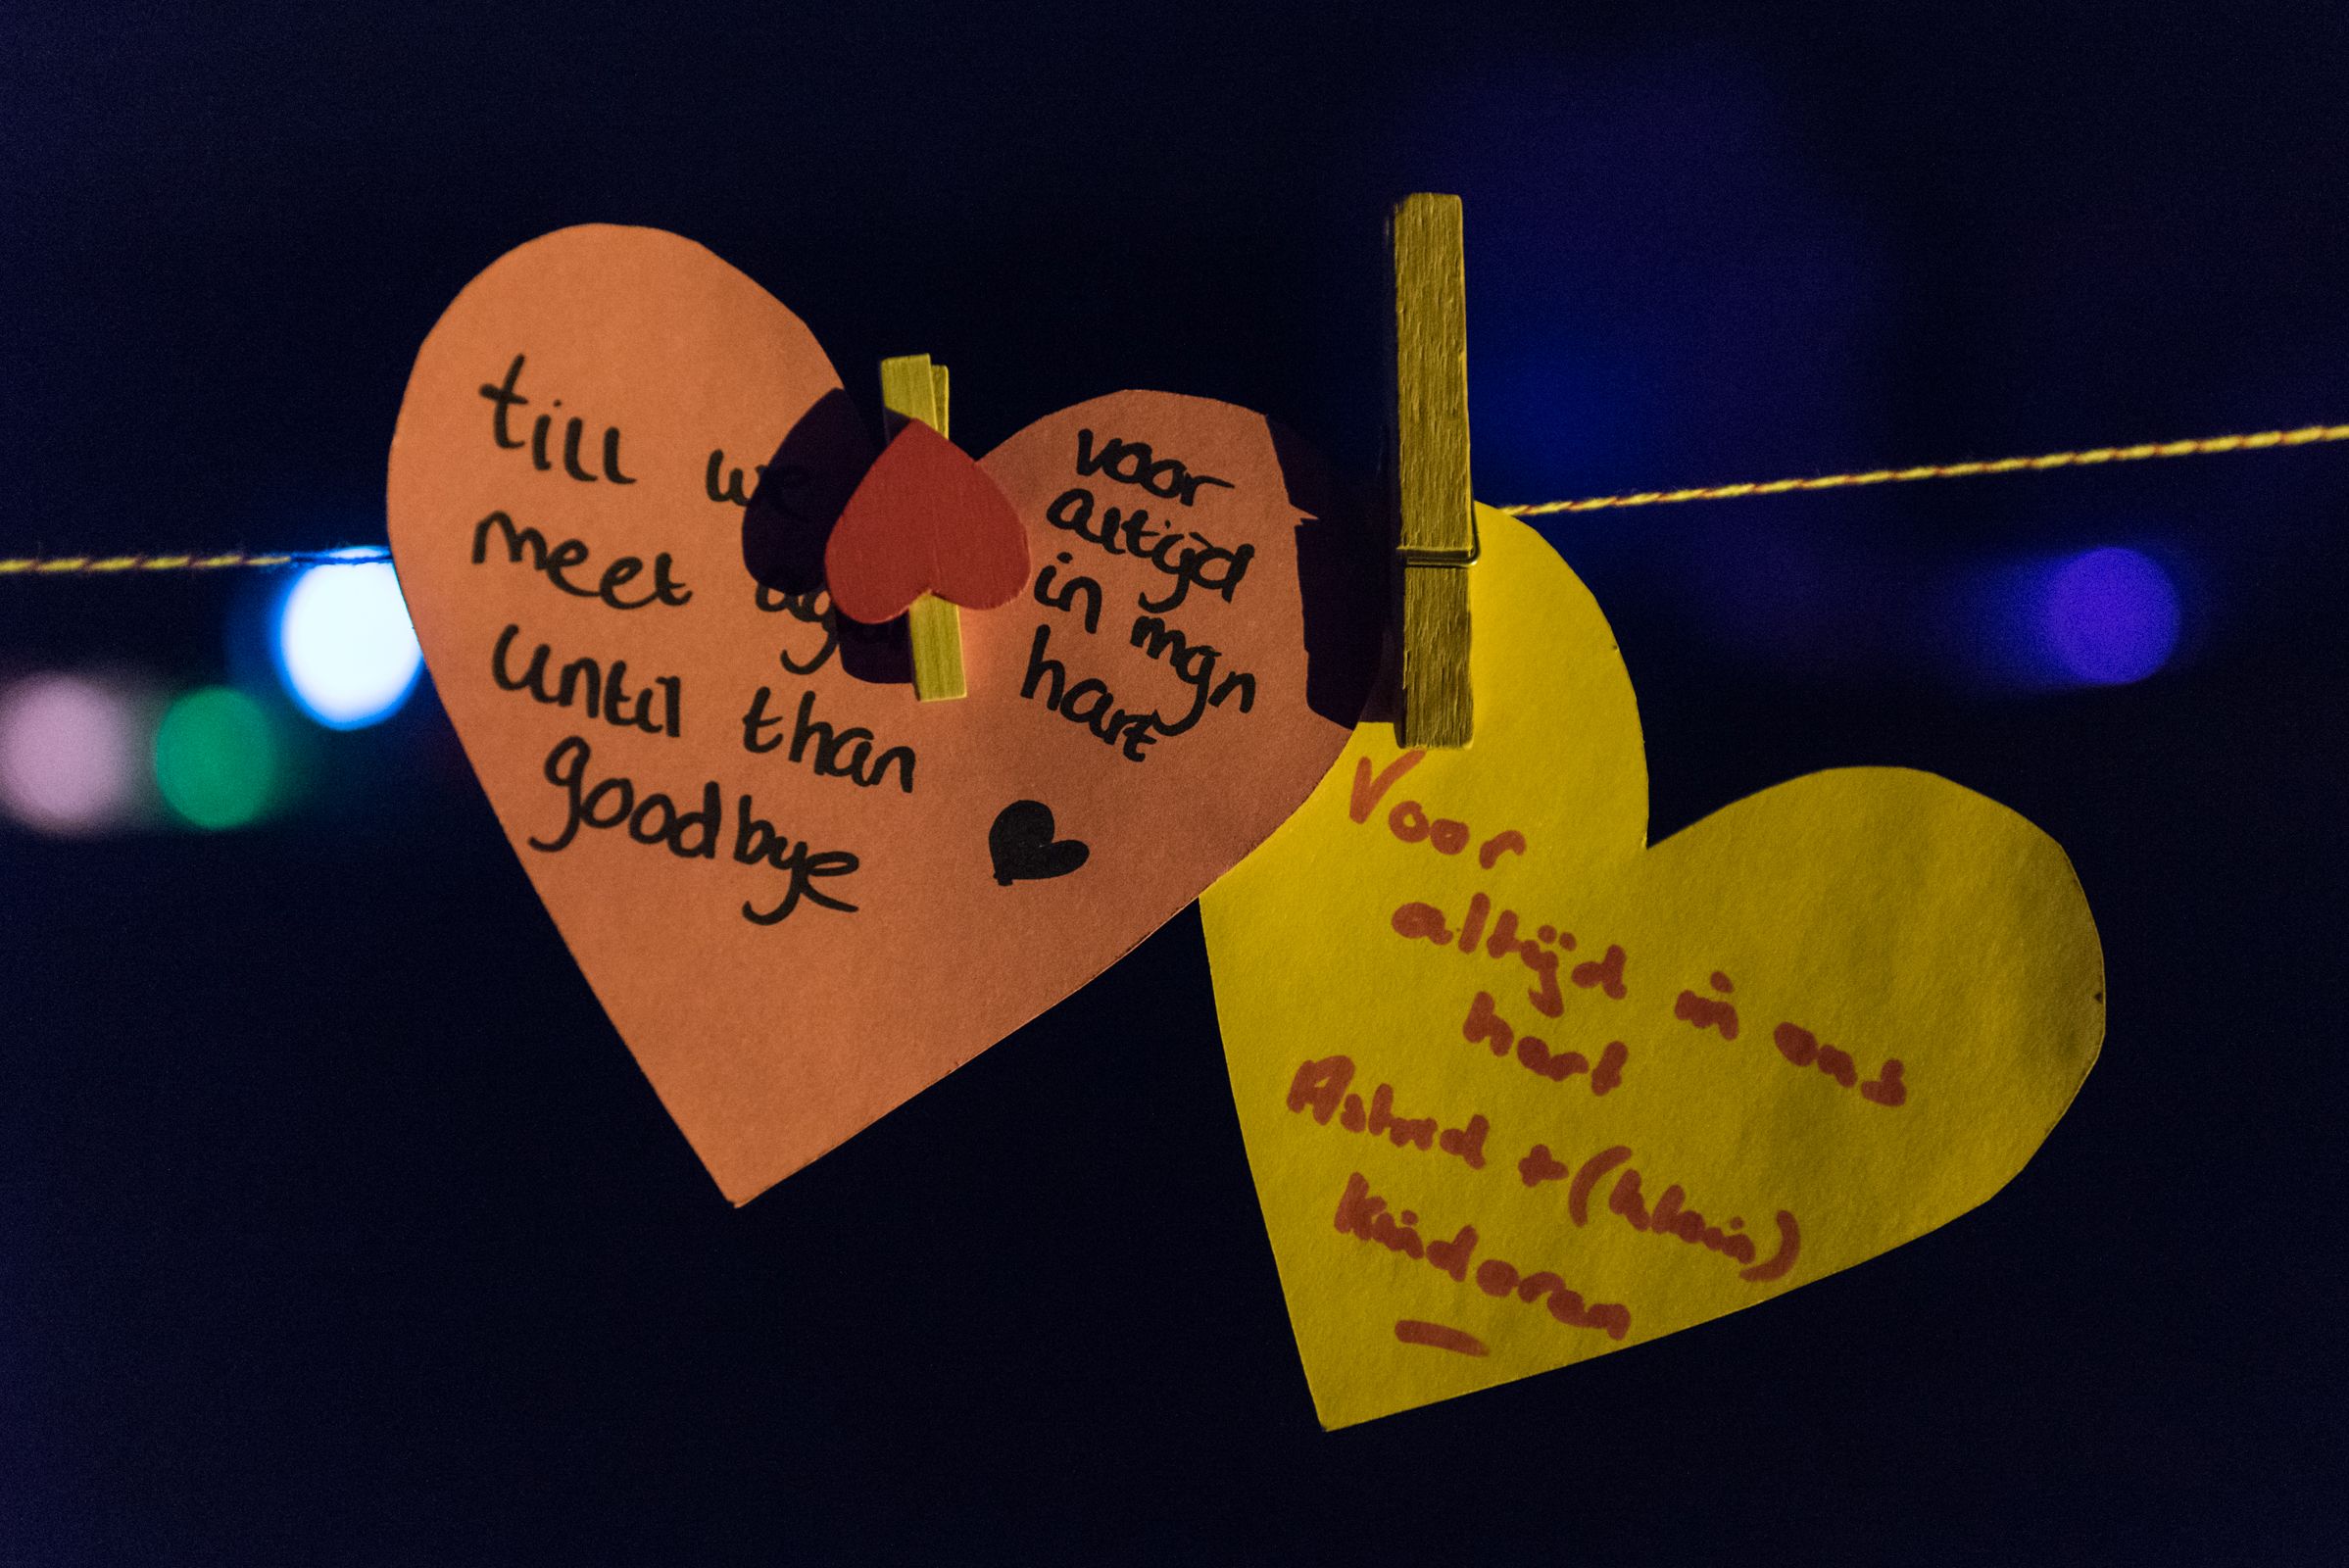 till we
meet
until than
goodbye
voor
altijd
in mijn
hart
Voor
altijd in ons
hart
Astrid + (klein)
Kinderen